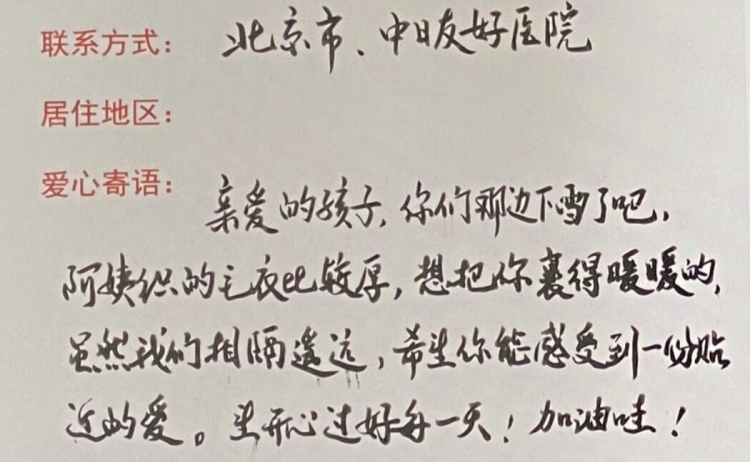 联系方式: 北京市、中日友好医院
居住地区:
爱心寄语: 亲爱的孩子,你们那边下雪了吧,
阿姨织的毛衣比较厚,想把你裹得暖暖的,
虽然我们相隔遥远,希望你能感受到一份贴
近的爱。要开心过好每一天!加油哇!